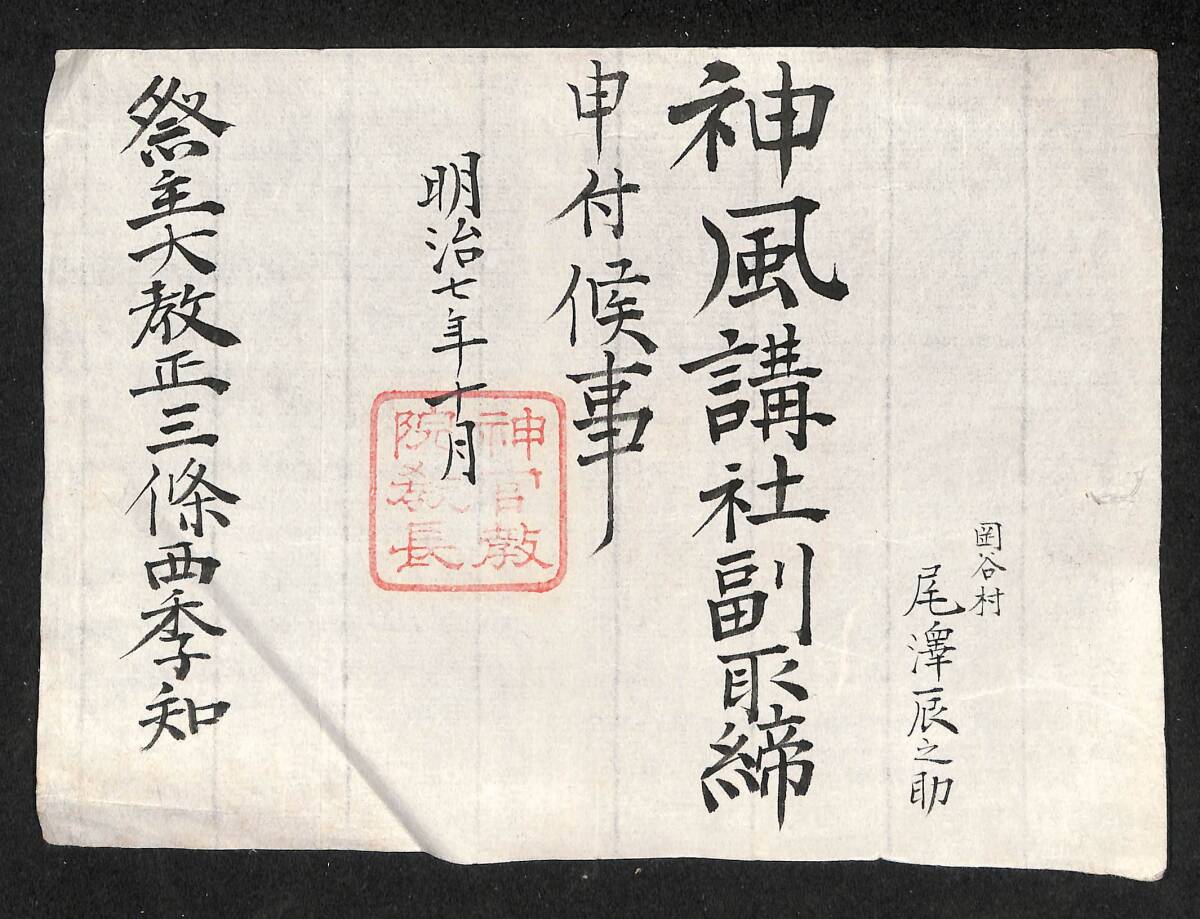 岡谷村
尾澤辰之助
神風講社副取締
申付候事
明治七年十月
神宮教
院教長
祭主大教正三條西季知